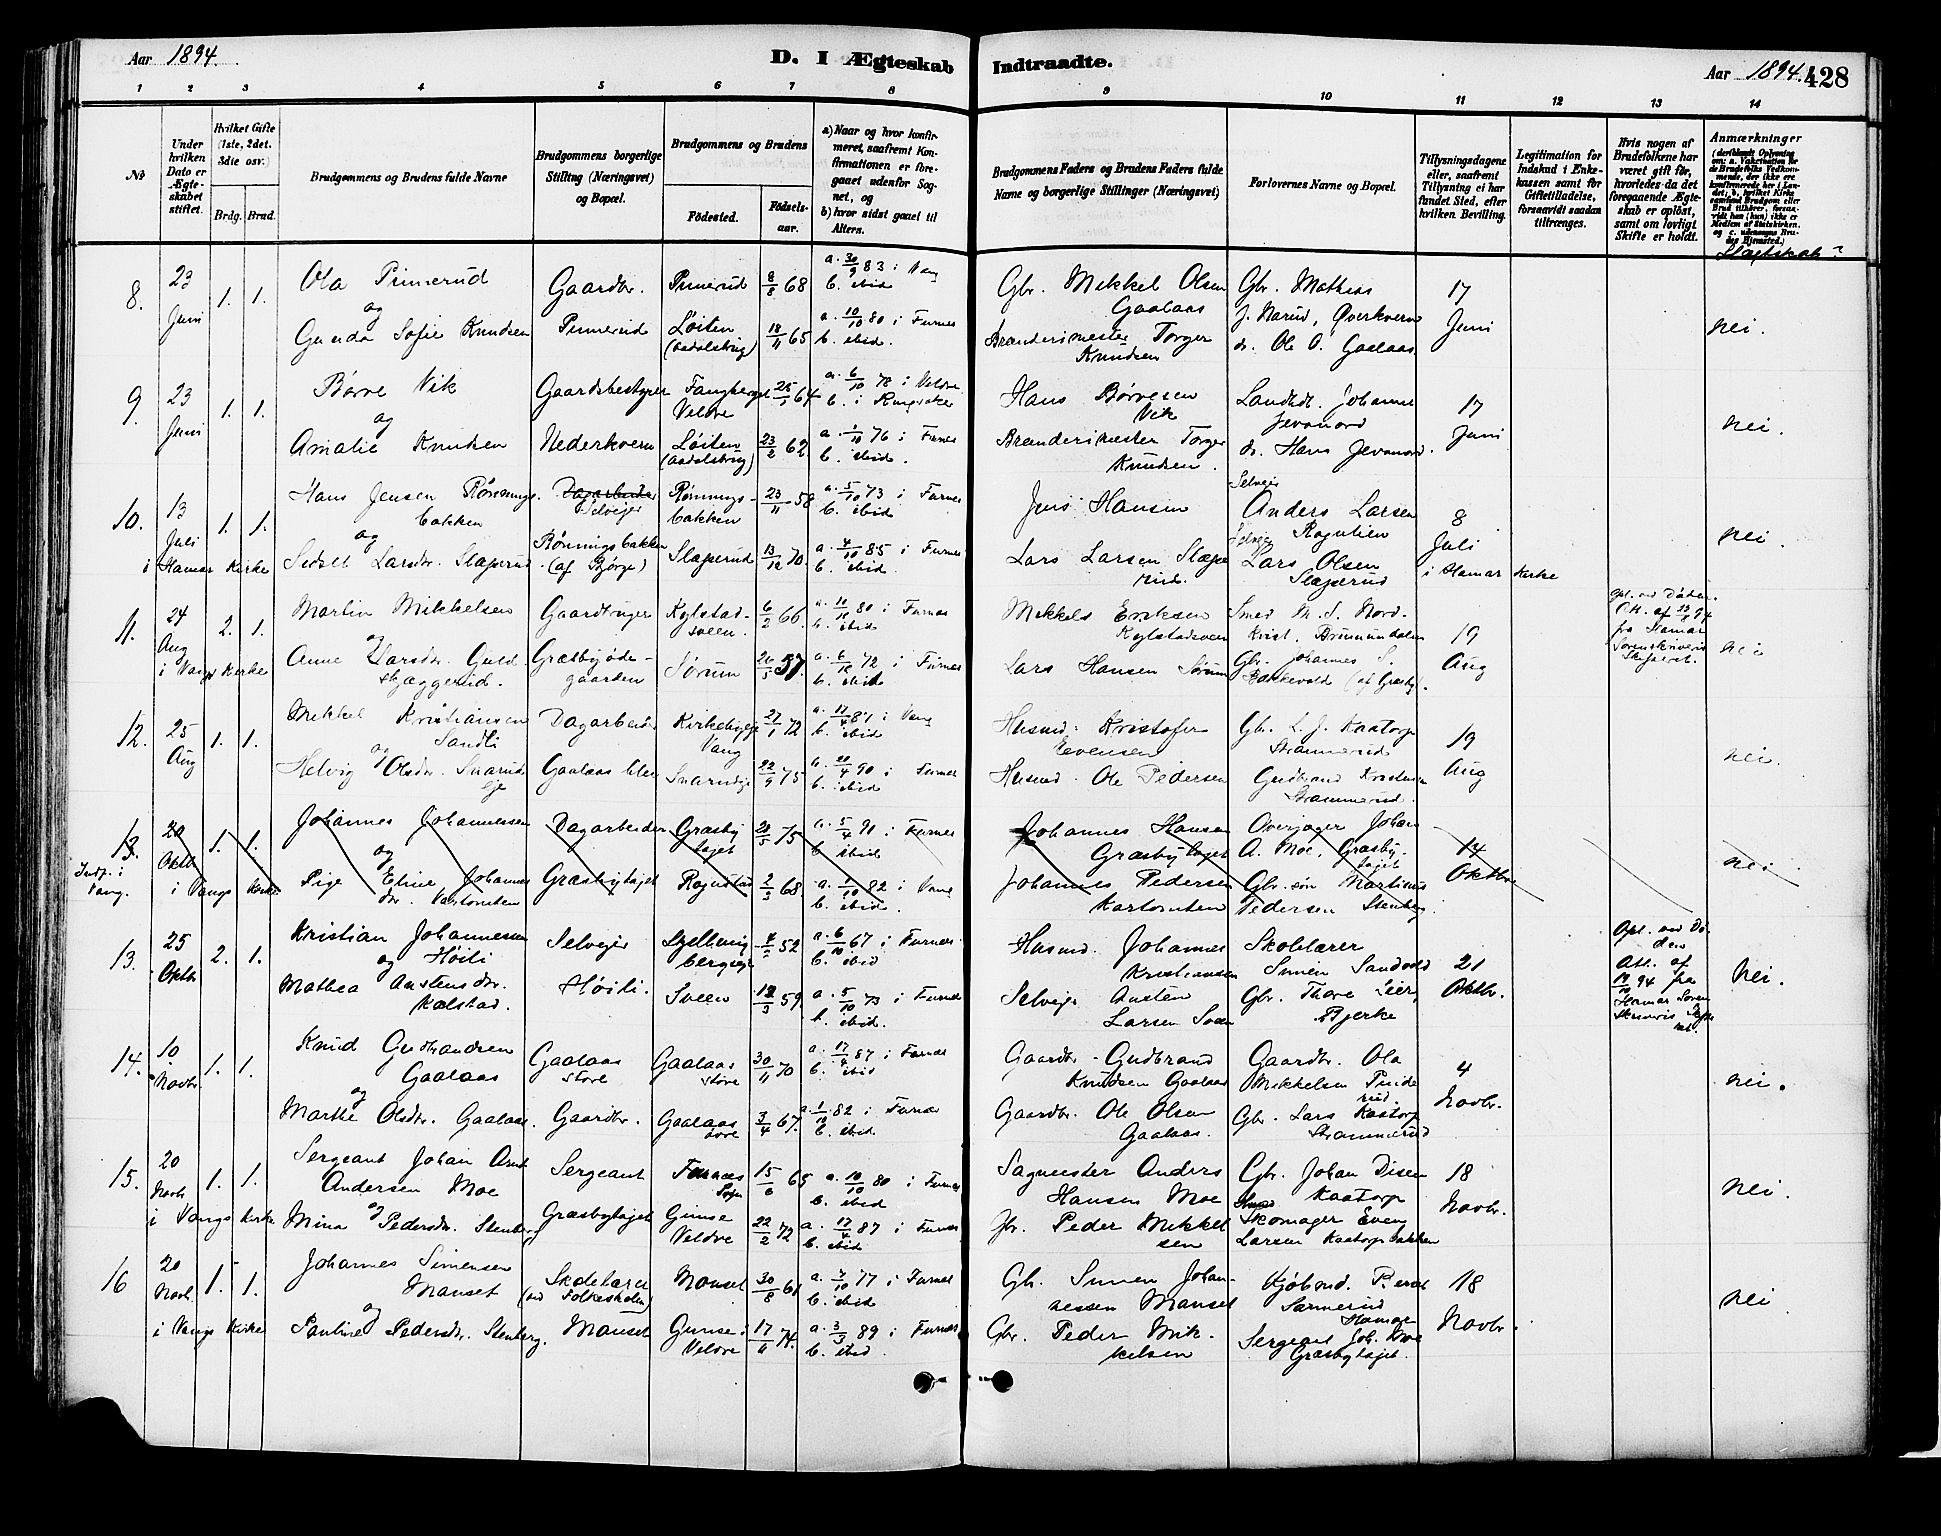 Aar 1894.
D. I Ægteskab Indtraadte.
Aar 1894. 428
1 2 3 4 5 6 7 8 9 10 11 12 13 14
№
Under hvilken Dato er Ægteskabet stiftet.
Hvilket Gifte (1ste, 2det. 3die osv.)
Brdg. Brud.
Brudgommens og Brudens fulde Navne
Brudgommens borgerlige Stilling (Næringsvei) og Bopæl.
Brudgommens og Brudens
Fødested.
Fødselsaar.
a) Naar og hvor konfirmeret, saafremt Konfirmationen er foregaaet udenfor Sognet, og
b) hvor sidst gaaet til Alters.
Brudgommens Faders og Brudens Faders fulde Navne og borgerlige Stillinger (Næringsvei)
Forlovernes Navne og Bopæl.
Tillysningsdagene eller, saafremt Tillysning ei har fundet Sted, efter hvilken Bevilling.
Legitimation for Indskud i Enkekassen samt for Giftetilladelse, forsaavidt saadan tiltrænges.
Hvis nogen af Brudefolkene har været gift før, hvorledes da det foregaaende Ægteskab er opløst, samt om lovligt Skifte er holdt.
Anmærkninger
Slægtskab?
8. 23 Juni 1. 1.
Ola Pinnerud
og
Gunda Sofie Knudsen
Gaardbr. Pinnerud
Pinnerud 8/8 68
Løiten (Aadalsbrug) 18/11 65
a. 30/9 83 i Vang
b. ibid
a. 10/10 80 i Furnes
b. ibid.
Gbr. Mikkel Olsen Gaalaas
Brænderimester Torger Knudsen
Gbr. Mathias J. Narud, Øverkvern
do. Ole O. Gaalaas
17 Juni
nei.
9. 23 Juni 1. 1.
Børre Vik
og
Amalie Knudsen
Gaardsbestyrer
Nederkvern
Fangberget Veldre 25/1 64
Løiten (Aadalsbrug) 23/2 62
a. 6/10 78 i Veldre
b. i Ringsaker
a. 1/10 76 i Furnes
b. ibid.
Hans Børresen Vik
Brænderimester Torger Knudsen.
Landhdl. Johannes Jevanord
do. Hans Jevanord.
17 Juni
nei.
10. 13 Juli 1. 1.
i Hamar Kirke
Hans Jensen Rønningsbakken
og
Sidsel Larsdr. Slaperud
Dagarbeider
Selveier
Rønningsbakken (af Bjørge)
Rønningsbakken 23/11 58
Slaperud 13/12 70
a. 5/10 73 i Furnes
b. ibid.
a. 4/10 85 i Furnes
b. ibid.
Jens Hansen
Lars Larsen Slaperud.
Selveier Anders Larsen Rognlien
Selveier Lars Olsen Slaperud
8 Juli
i Hamar Kirke
nei.
11. 24 Aug 2. 1.
i Vangs Kirke
Martin Mikkelsen
og
Anne Larsdr. Guldskjæggerud.
Gaardbruger
Græsbyødegaarden
Kylstadsveen. 6/2 66
Sørum 26/5 57.
a. 80 i Furnes
b. ibid
a. 6/10 72 i Furnes
b. ibid
Mikkels Eriksen Kylstadsveen
Lars Hansen Sørum
Smed M. S. Nordkvist. Brumunddalen
Gbr. Johannes S. Bakkevold (af Græsby).
19 Aug
Opl. ved Døden. Att. af 94 fra Hamar Sorenskriveris Skifteret.
nei
12. 25 Aug 1. 1.
Mikkel Kristiansen Sandli
og
Helvig Olsdr. Snarudeje
Dagarbeider
Gaalaas lille
Kirkebyeje Vang 27/1 72
Snarudeje 22/9 75
a. 17/4 87 i Vang
b. ibid
a. 20/4 90 i Furnes
b. ibid
Husmd. Kristofer Evensen
Husmd. Ole Pedersen
Gbr. L. J. Kaatorp Strammerud
Gudbrand Kristensen Strammerud.
19 Aug
nei.
13. 20 Oktbr 1. 1.
i Vangs Kirke
Indf. i Vang.
Johannes Johannessen
og
Pige Eline Johannesdr. Kastomten
Dagarbeider
Græsbylajet
Græsbylajet 20/5 75
Rognstad 2/3 68
a. 5/4 91 i Furnes
b. ibid
a. 1/10 82 i Vang
b. ibid.
Johannes Hansen Græsbylajet
Johannes Pedersen Kastomten
Overjæger Johan A. Moe, Græsbylajet
Gbr. søn Martinus Pedersen Stenberg.
14 Oktbr
nei.
13. 25 Oktbr 2. 1.
Kristian Johannessen Høili
og
Mathea Austensdr. Kalstad.
Selveier
Høili.
52
Sveen 12/3 59
a. 6/10 67 i Furnes
b. ibid
a. 5/10 73 i Furnes
b. ibid.
Husmd. Johannes Kristiansen
Selveier Austen Larsen Sveen
Skolelærer Simen Sandvold
Gbr. Thore Seier, Bjerke
21 Oktbr.
Opl. ved Døden Att. af 94 fra Hamar Sorenskriveris Skifteret.
nei.
14. 10 Novbr. 1. 1.
Knud Gudbrandsen Gaalaas
og
Marthe Olsdr. Gaalaas.
Gaalaas store
Gaardbr.
Gaalaas store 30/11 70
Gaalaas store 3/4 67.
a. 17/4 87 i Furnes
b. ibid
a. 1/10 82 i Furnes
b. ibid
Gaardbr. Gudbrand Knudsen Gaalaas
Gaardbr. Ole Olsen Gaalaas.
Gaardbr. Ola Mikkelsen Pinderud
Gbr. Lars Kaatorp Strammerud
4 Novbr.
nei.
15. 20 Novb. 1. 1.
i Vangs Kirke
Sergeant Johan Arnt Andersen Moe
og
Mina Pedersdr. Stenberg
Sergeant
Græsbylajet
Furnes Sogn 15/6 65
Gimse Veldre 22/2 72
a. 10/10 80 i Furnes
b. ibid
a. 17/4 87 i Furnes
b. ibid
Sagmester Anders Hansen Moe
Gbr. Peder Mikkelsen
Gbr. Johan Disen Kaatorp
Skomager Even Larsen Kaatorpbakken
18 Novbr.
nei.
16 20 Novb. 1. 1.
i Vangs Kirke
Johannes Simensen Manset
og
Pauline Pedersdr. Stenberg.
Skolelærer (ved Folkeskolen)
Manset
Manset 30/8 61
Gimse i Veldre 17/11 74.
a. 7/10 77 i Furnes
b. ibid
a. 3/3 89 i Furnes
b. ibid.
Gbr. Simen Johannessen Manset
Gbr. Peder Mikkelsen
Kjøbmd. P. Sannerud Hamar
Sergeant Joh. Moe Græsbylajet.
18 Novbr.
nei